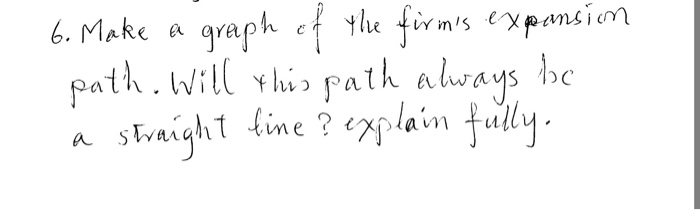 6. Make a graph of the firm's expansion
path. Will this path always be
a straight line? explain fully.